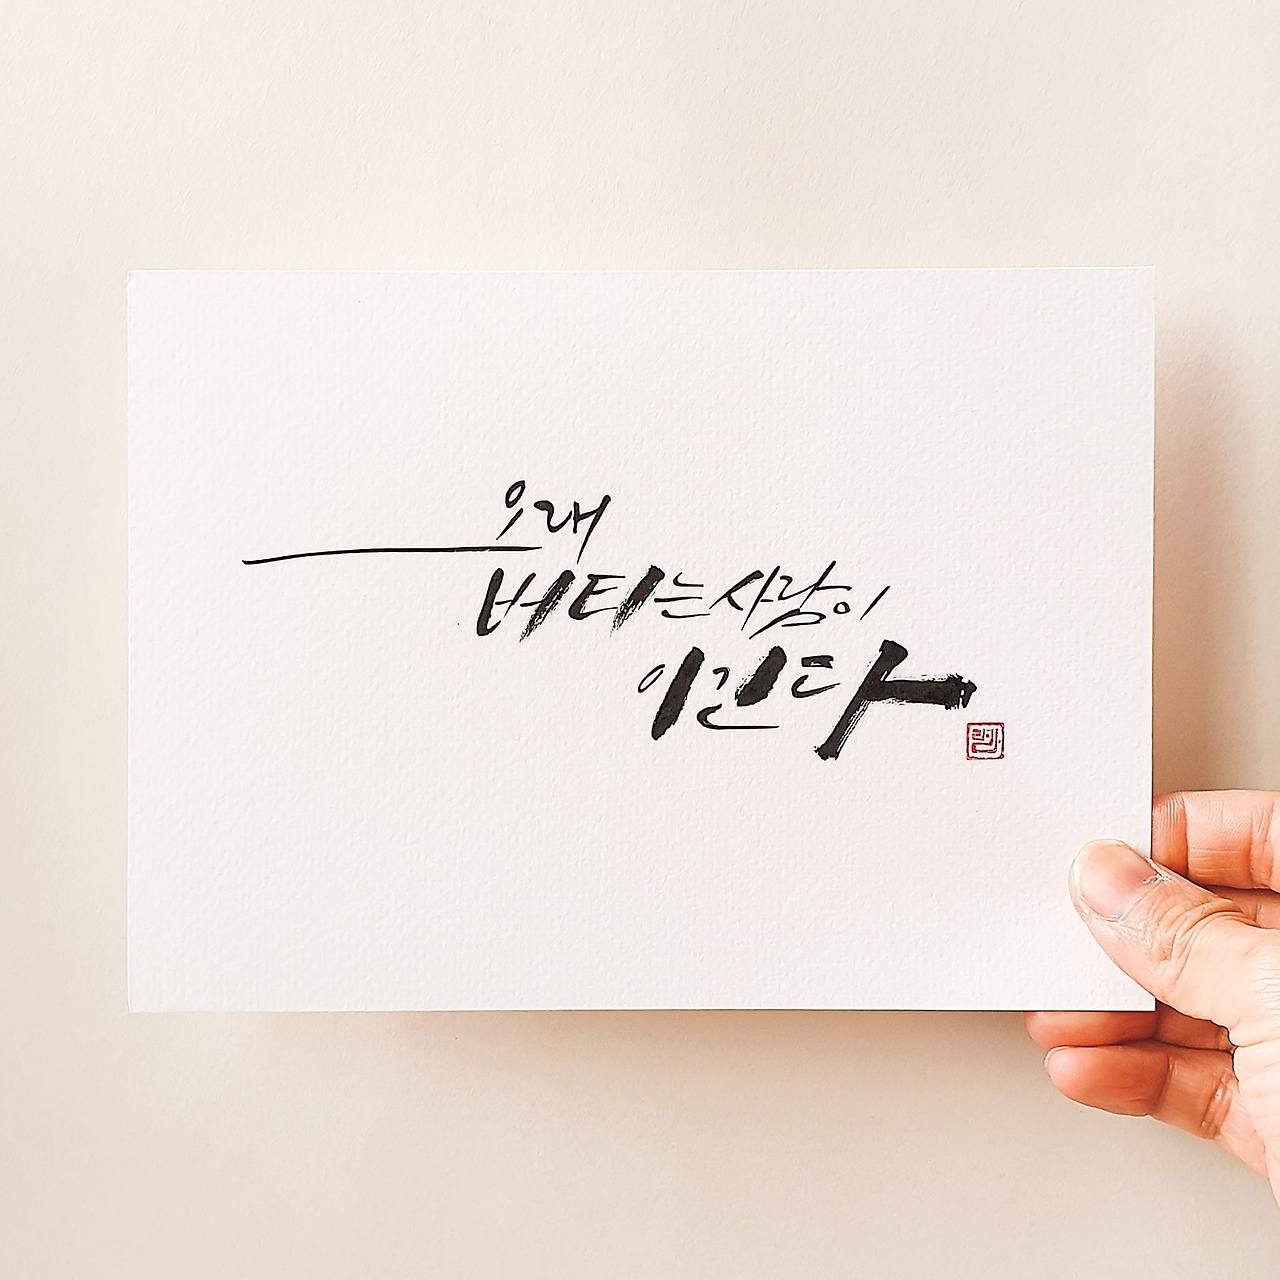 오래
버티는 사람이
이긴다